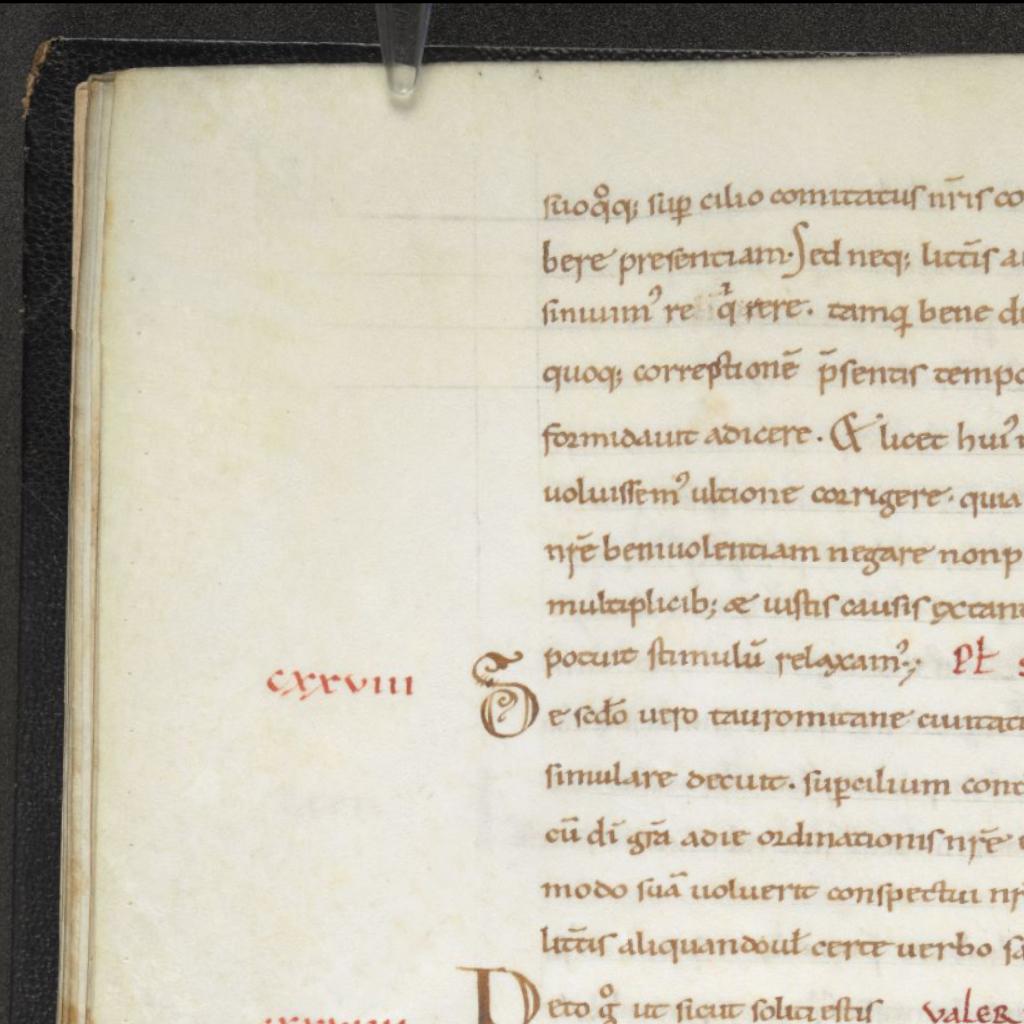 suoq̊q; sup̲ cilio comitatus nr̄is co
bere presentiam. Sed neq; litt̄is a
sinuimꝰ re qͥrere. tamq bene d
quoq; correptionē p̄sentis tempo
formidauit adicere. & licet huiꝰ
uoluissemꝰ ultione corrigere. quia
nr̄ē beniuolentiam negare non p
multiplicib; æ iustis causis extan
potuit stimulū relaxamꝰ; Pł
cxxviii
De scd̄o uero tauromitane ciuitati
simulare decuit. sup̲cilium cont
cū dī gr̄a adie ordinationis nr̄ē
modo suā uoluerit conspectui nr̄
litt̄is aliquando uł certe uerbo sa
Peto g̊ ut sicut soliti estis valer